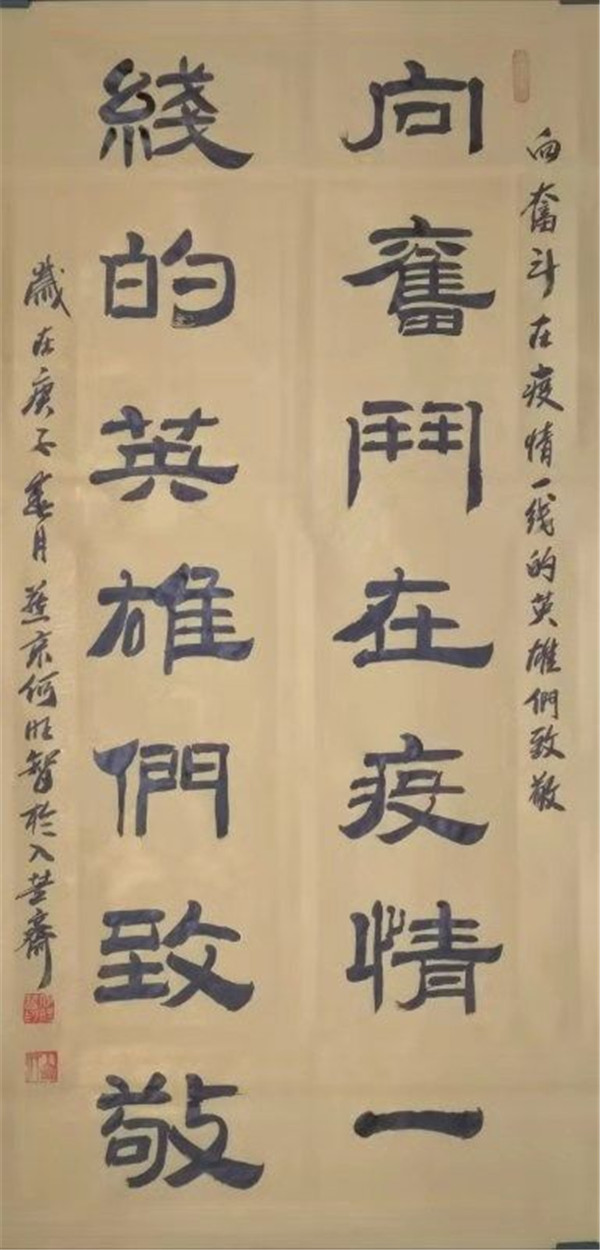 向奮斗在疫情一线的英雄們致敬
向奮鬥在疫情一
綫的英雄們致敬
歲在庚子春月燕京何旺智於入芸齋